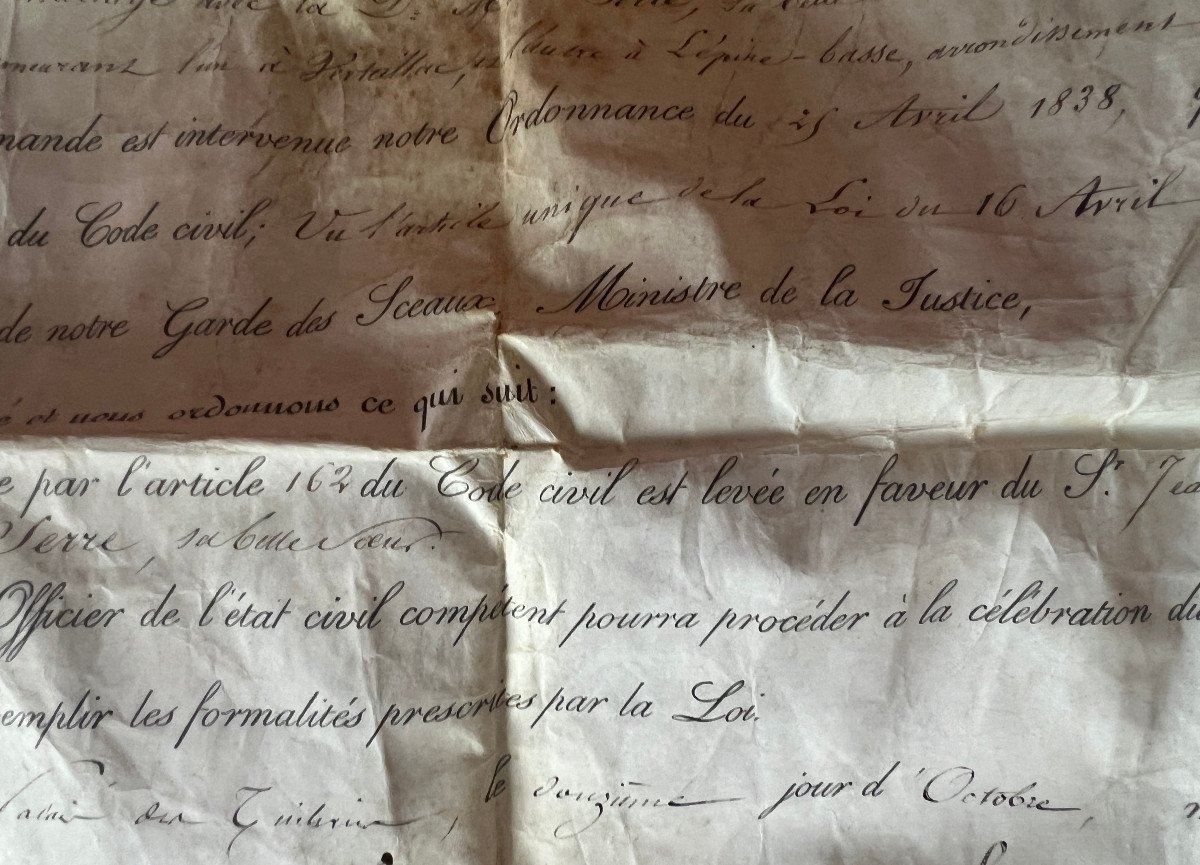 avec la D.
l'un à Verteillac, l'autre à Lépine-basse, arrondissement
mande est intervenue notre Ordonnance du 25 Avril 1838,
du Code civil; Vu l'article unique de la Loi du 16 Avril
de notre Garde des Sceaux Ministre de la Justice,
é et nous ordonnons ce qui suit:
e par l'article 162 du Code civil est levée en faveur du Sr. Jea
Serre, sa belle sœur.
Officier de l'état civil compétent pourra procéder à la célébration du
emplir les formalités prescrites par la Loi.
des Tuileries, le douzième jour d'Octobre,